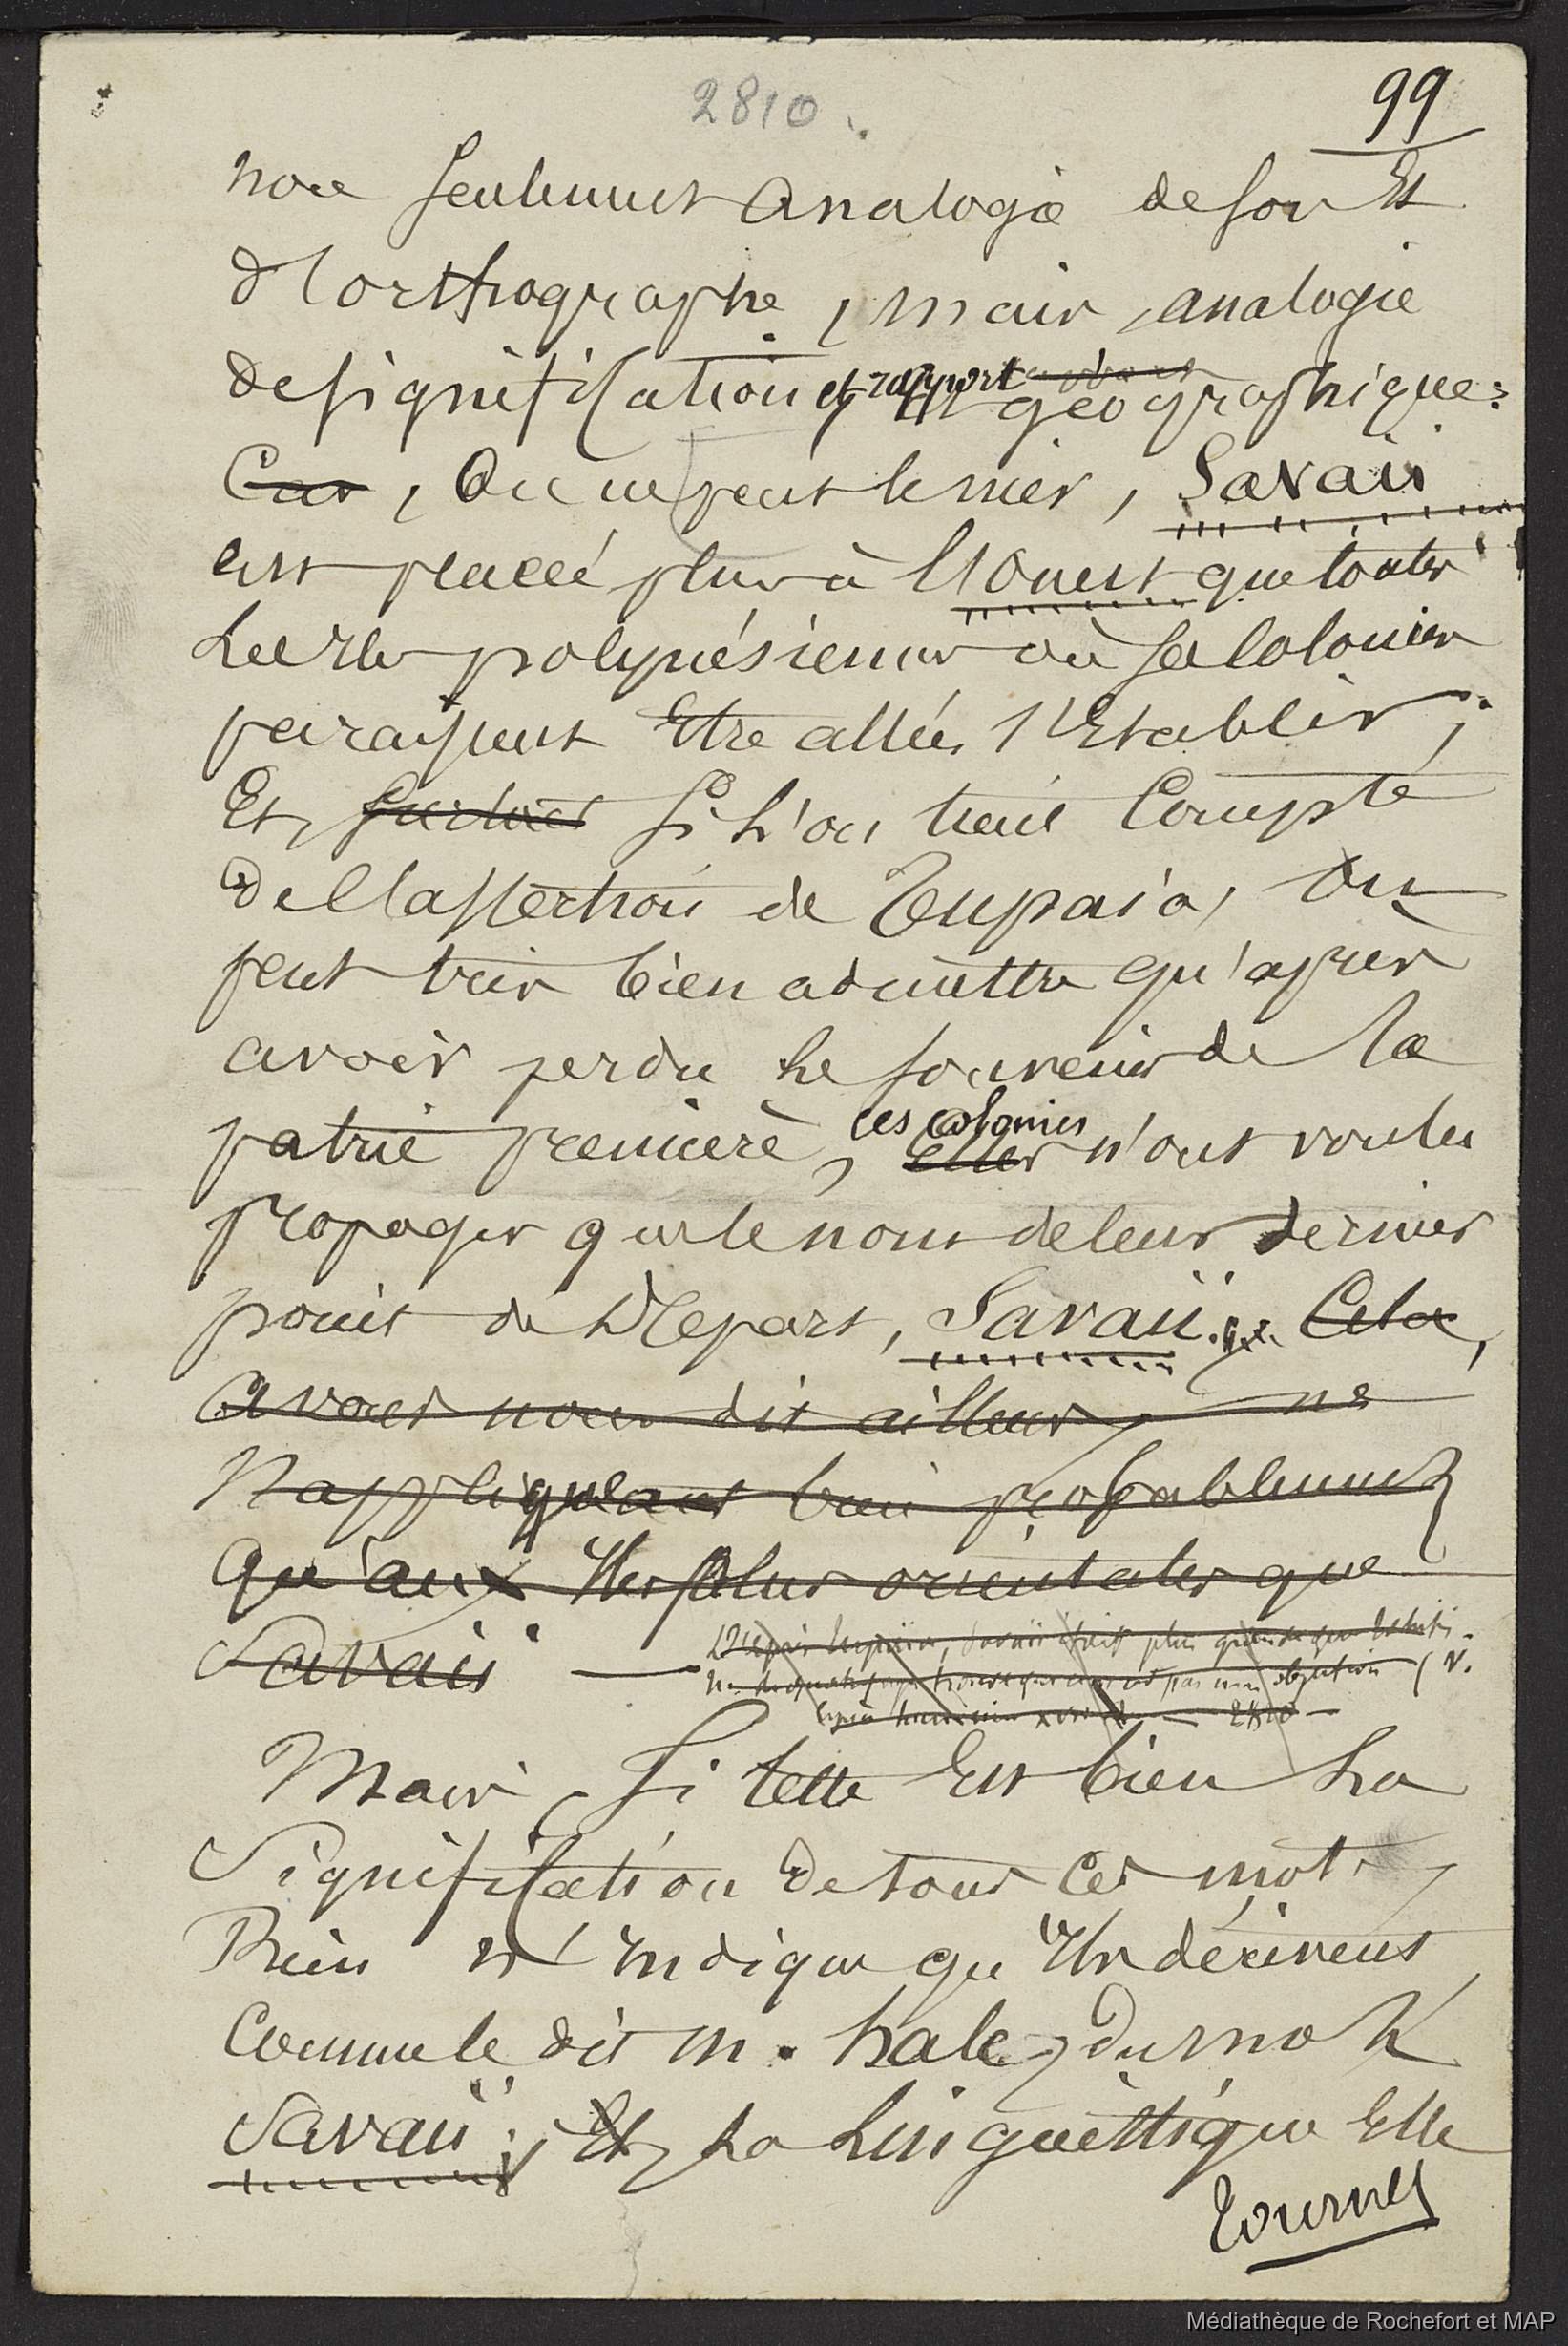 2810.
99
non seulement analogie de son Et
d'lorthographe, mais, analogie
de signification et rapport géographique:
Car, On ne peut le nier, Savaii
Est placée plus à l'Ouest que toutes
Les Iles polynésiennes où ses Colonies
paraissent Etre allées s'Etablir;
Et, surtout si l'on tient Compte
de l'assertion de Tupaia, On
peut très bien admettre qu'après
avoir perdu le souvenir de la
patrie première, ces colonies
Elles n'ont voulu
propager que le nom de leur dernier
point de Départ, Savaii. Cela,
avons nous dit ailleurs, ne
s'appliquant bien probablement
qu'aux Iles plus orientales que
Savaii —
D'après Tupaia, Savaii était plus grande que Tahiti.
2810 —
Mais, si telle Est bien La
Signification de tous Ces mots,
Rien n'Indique qu'Ils dérivent
Comme le dit M. hale, du mot
Savaii; Et, La Linguistique Elle
Tournez
Médiathèque de Rochefort et MAP